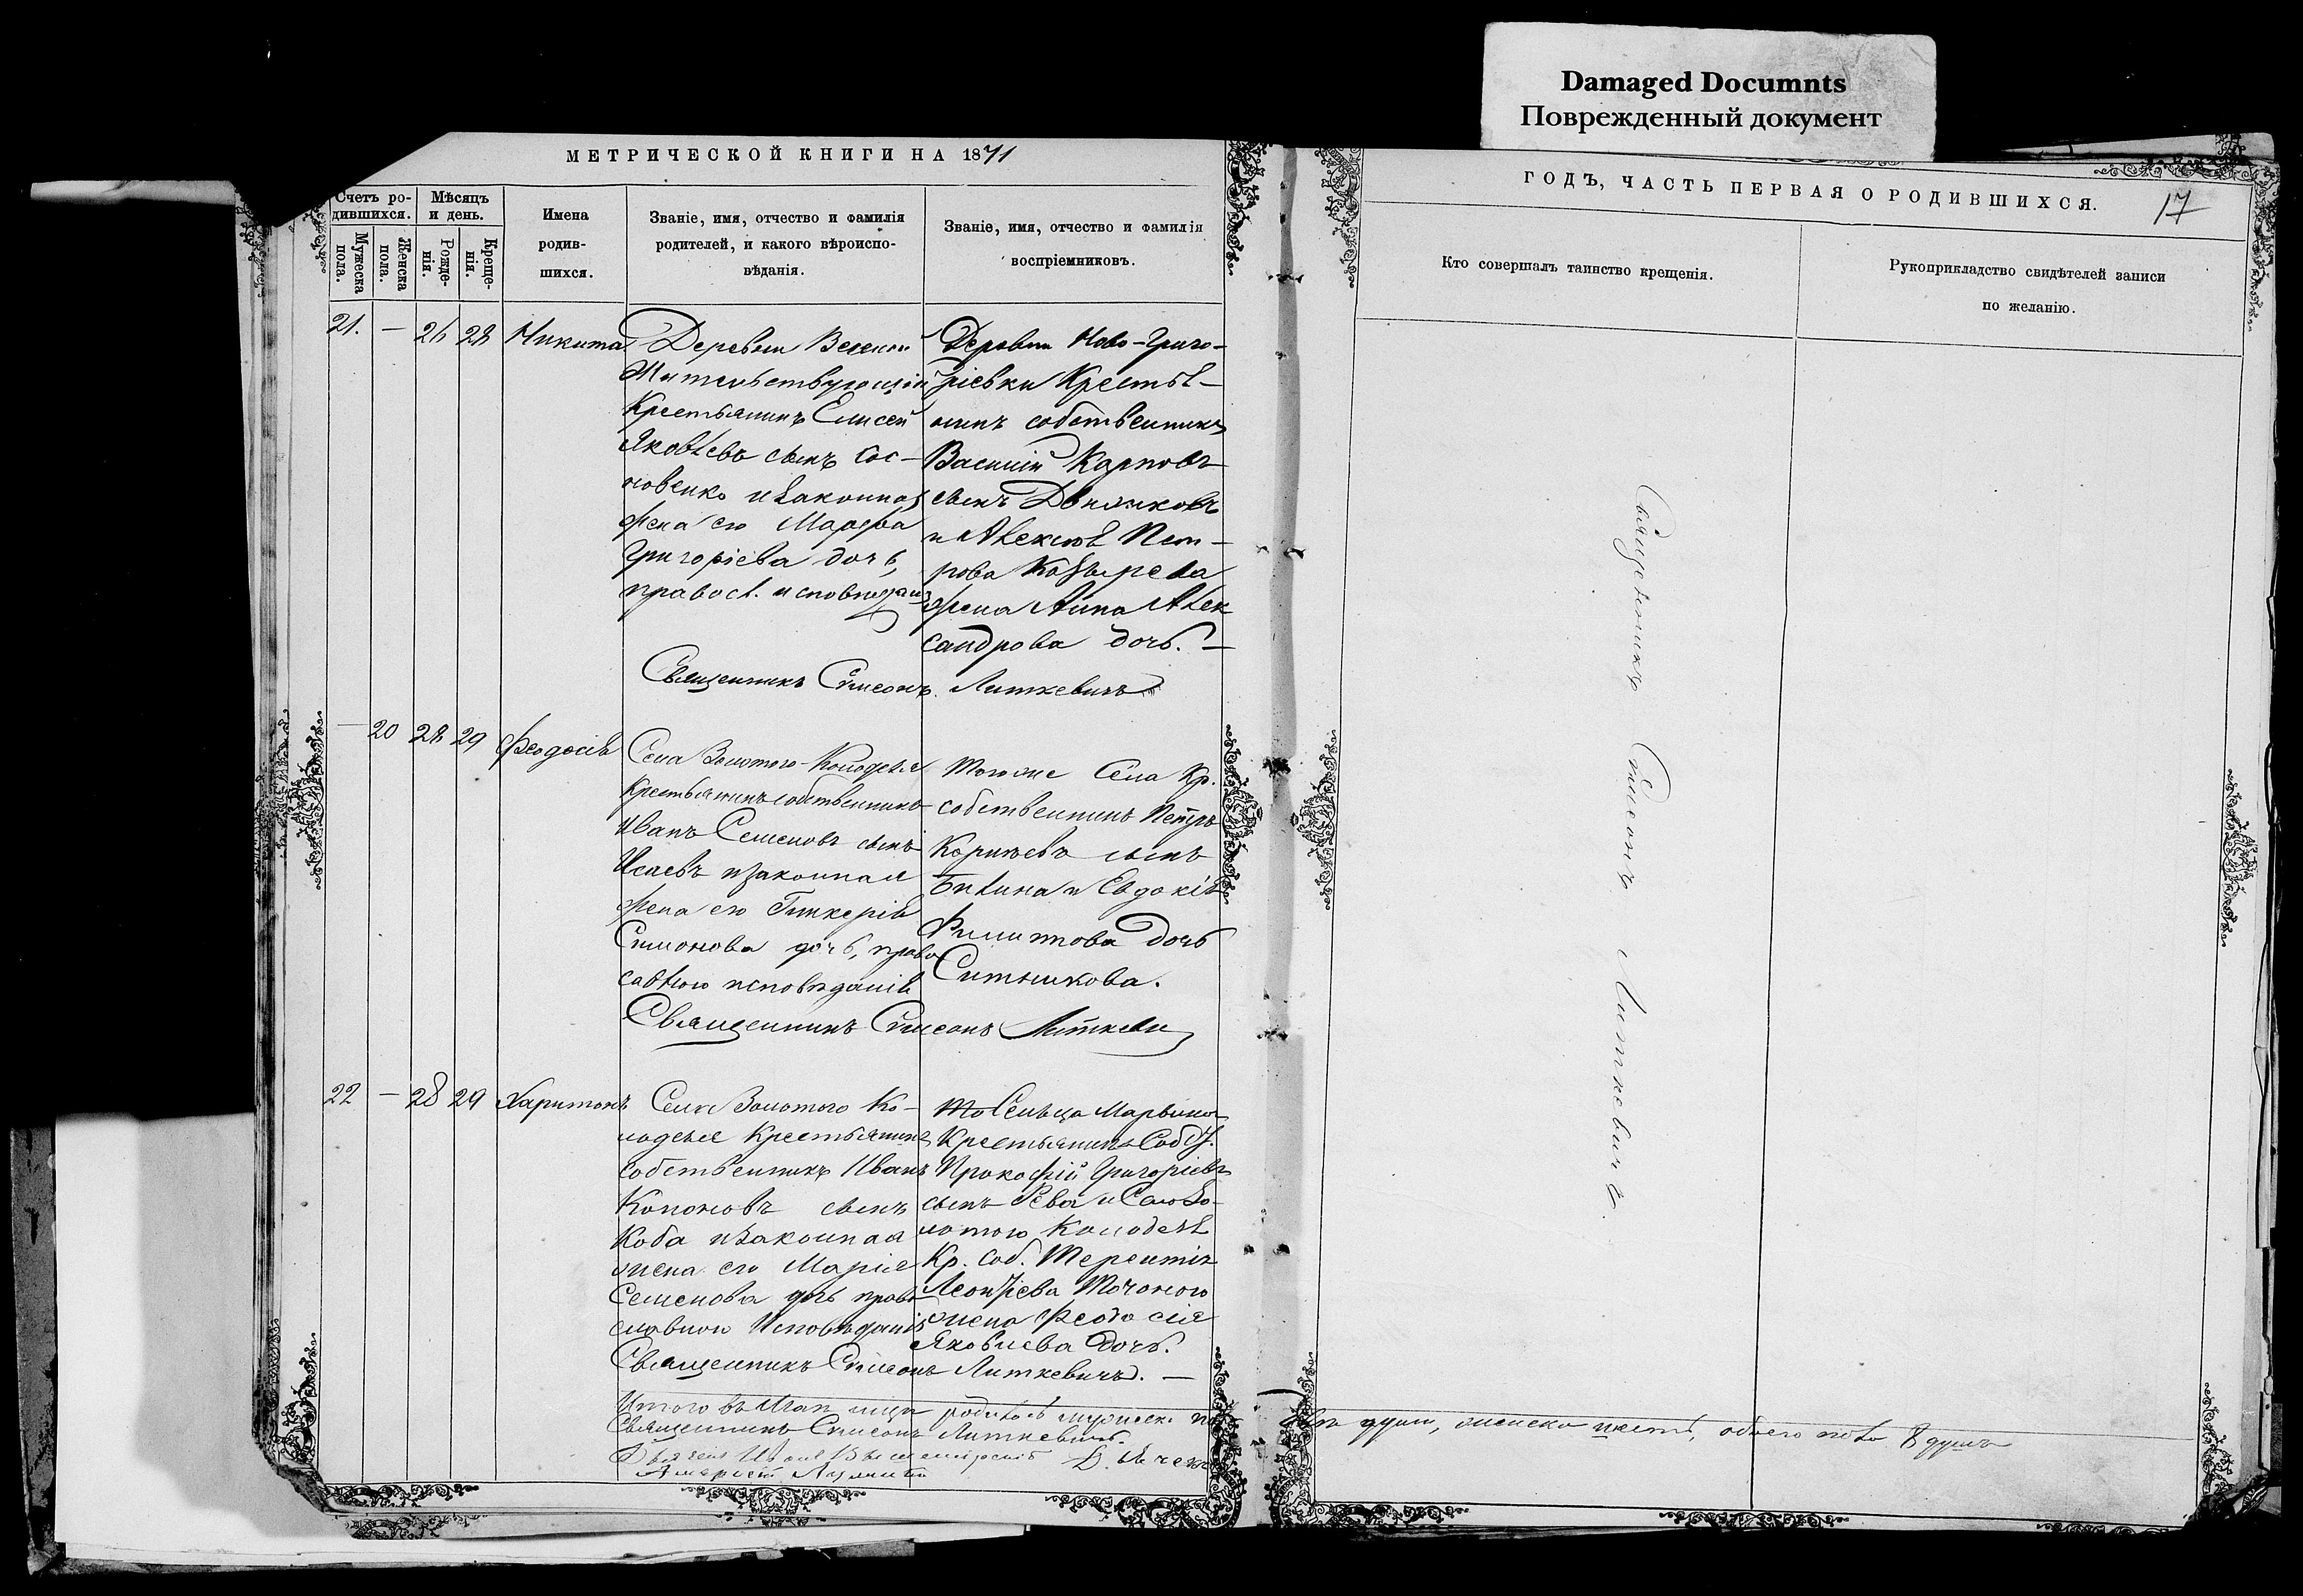 Damaged Documnts
Поврежденный документ
МЕТРИЧЕСКОЙ КНИГИ НА 1871
ГОДЪ, ЧАСТЬ ПЕРВАЯ О РОДИВШИХСЯ.
17
Счетъ ро-
дившихся.
Мужеска
пола.
Женска
пола.
Мѣсяцъ
и день.
Рожде-
нія.
Креще-
нія.
Имена
родив-
шихся.
Званіе, имя, отчество и фамилія
родителей, и какого вѣроиспо-
вѣданія.
Званіе, имя, отчество и фамилія
воспріемниковъ.
Кто совершалъ таинство крещенія.
Рукоприкладство свидѣтелей записи
по желанію.
21. — 26 28 Никита
Деревни
Жительствующій
Крестьянинъ Елисей
Яковлевъ сынъ Сос-
новенко и законная
жена его Марфа
Григоріева дочь,
правосл. исповѣдан
Деревни Ново-Григо-
ріевки Крестья-
нинъ собственникъ
Василій Карповъ
сынъ
и Алексія Пет-
рова Козырева
жена Анна Алек
сандрова дочь. —
Священникъ Симеонъ Литкевичъ
— 20 28 29 Феодосія
Села Золотого-Колодезя
Крестьянинъ собственникъ
Иванъ Семеновъ сынъ
Исаевъ и законная
жена его Гликерія
Симонова дочь, право
славнаго исповѣданія
Тогоже Села Кр.
собственникъ Петръ
сынъ
и Евдокія
Филипова дочь
Ситникова.
Священникъ Симеонъ Литкевич
22 — 28 29 Харитонъ
Села Золотого Ко-
лодезя Крестьянинъ
собственникъ Иванъ
Кононовъ сынъ
Коба и законная
жена его Марія
Семенова дочь право
славного Исповѣданія
Сельца
Крестьянинъ Соб.
Прокофій Григоріевъ
сынъ Рева и Села Зо-
лотого Колодезя
Кр. Соб. Терентія
Леонтіева
жена Феодосія
Яковлева Дочь.
Священникъ Симеонъ Литкевичъ. —
Итого въ родилось мужеска по
двѣ души, женска шесть, обоего пола 8 душъ
Священникъ Симеонъ Литкевичъ.
Священникъ Симеонъ Литкевичъ